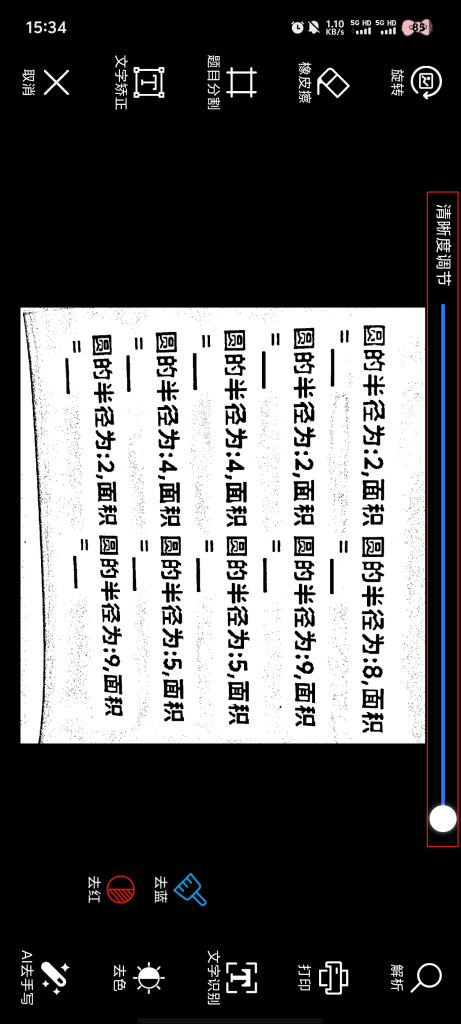 15:34
1.10
KB/s
5G HD
5G HD
85
取消
文字矫正
题目分割
橡皮擦
旋转
清晰度调节
圆的半径为:2,面积 圆的半径为:8,面积
= ___ = ___
圆的半径为:2,面积 圆的半径为:9,面积
= ___ = ___
圆的半径为:4,面积 圆的半径为:5,面积
= ___ = ___
圆的半径为:4,面积 圆的半径为:5,面积
= ___ = ___
圆的半径为:2,面积 圆的半径为:9,面积
= ___ = ___
去红
去蓝
AI去手写
去色
文字识别
打印
解析